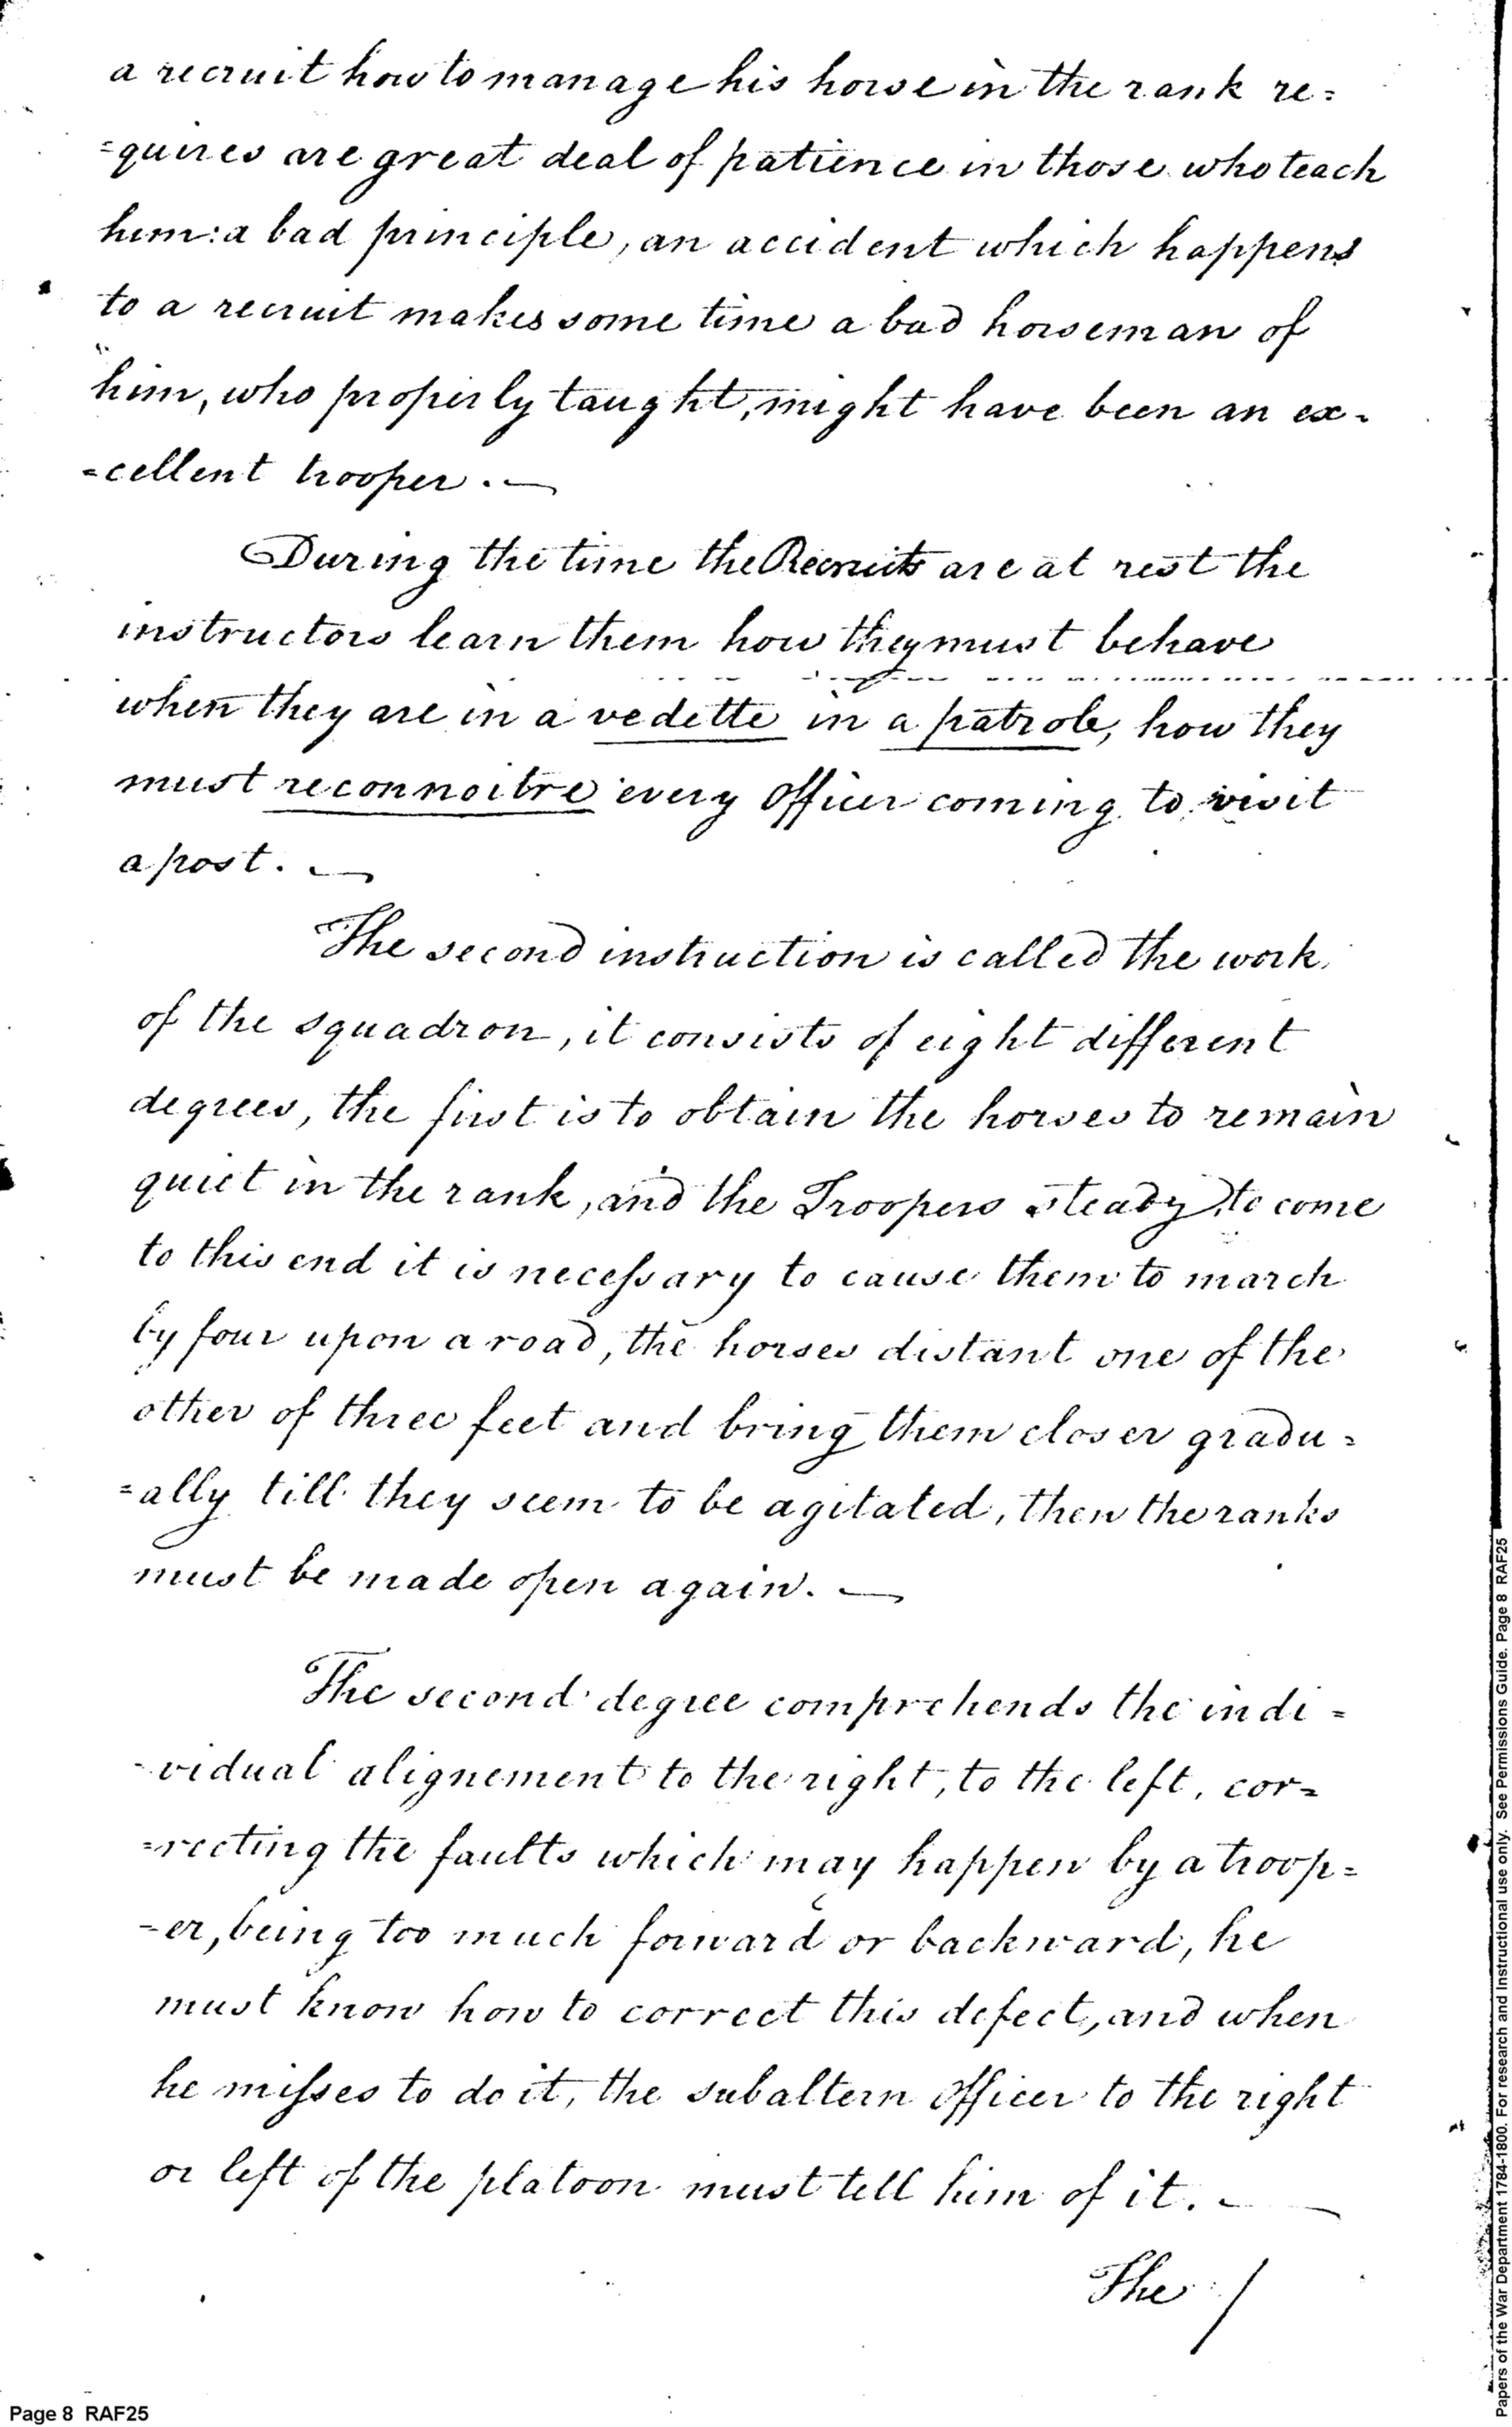 a recruit how to manage his horse in the rank re=
=quires are great deal of patience in those who teach
him: a bad principle, an accident which happens
to a recruit makes some time a bad horseman of
him, who properly taught, might have been an ex=
=cellent trooper. —
During the time the Recruits are at rest the
instructors learn them how they must behave
when they are in a vedette in a patrole, how they
must reconnoitre every officer coming to visit
a post. —
The second instruction is called the work
of the squadron, it consists of eight different
degrees, the first is to obtain the horses to remain
quiet in the rank, and the Troopers steady, to come
to this end it is necessary to cause them to march
by four upon a road, the horses distant one of the
other of three feet and bring them closer gradu=
=ally till they seem to be agitated, then the ranks
must be made open again. —
The second degree comprehends the indi=
-vidual alignement to the right, to the left, cor=
=recting the faults which may happen by a troop=
=er, being too much forward or backward, he
must know how to correct this defect, and when
he misses to do it, the subaltern officer to the right
or left of the platoon must tell him of it. —
The /
Page 8 RAF25
Papers of the War Department 1784-1800. For research and Instructional use only. See Permissions Guide. Page 8 RAF25